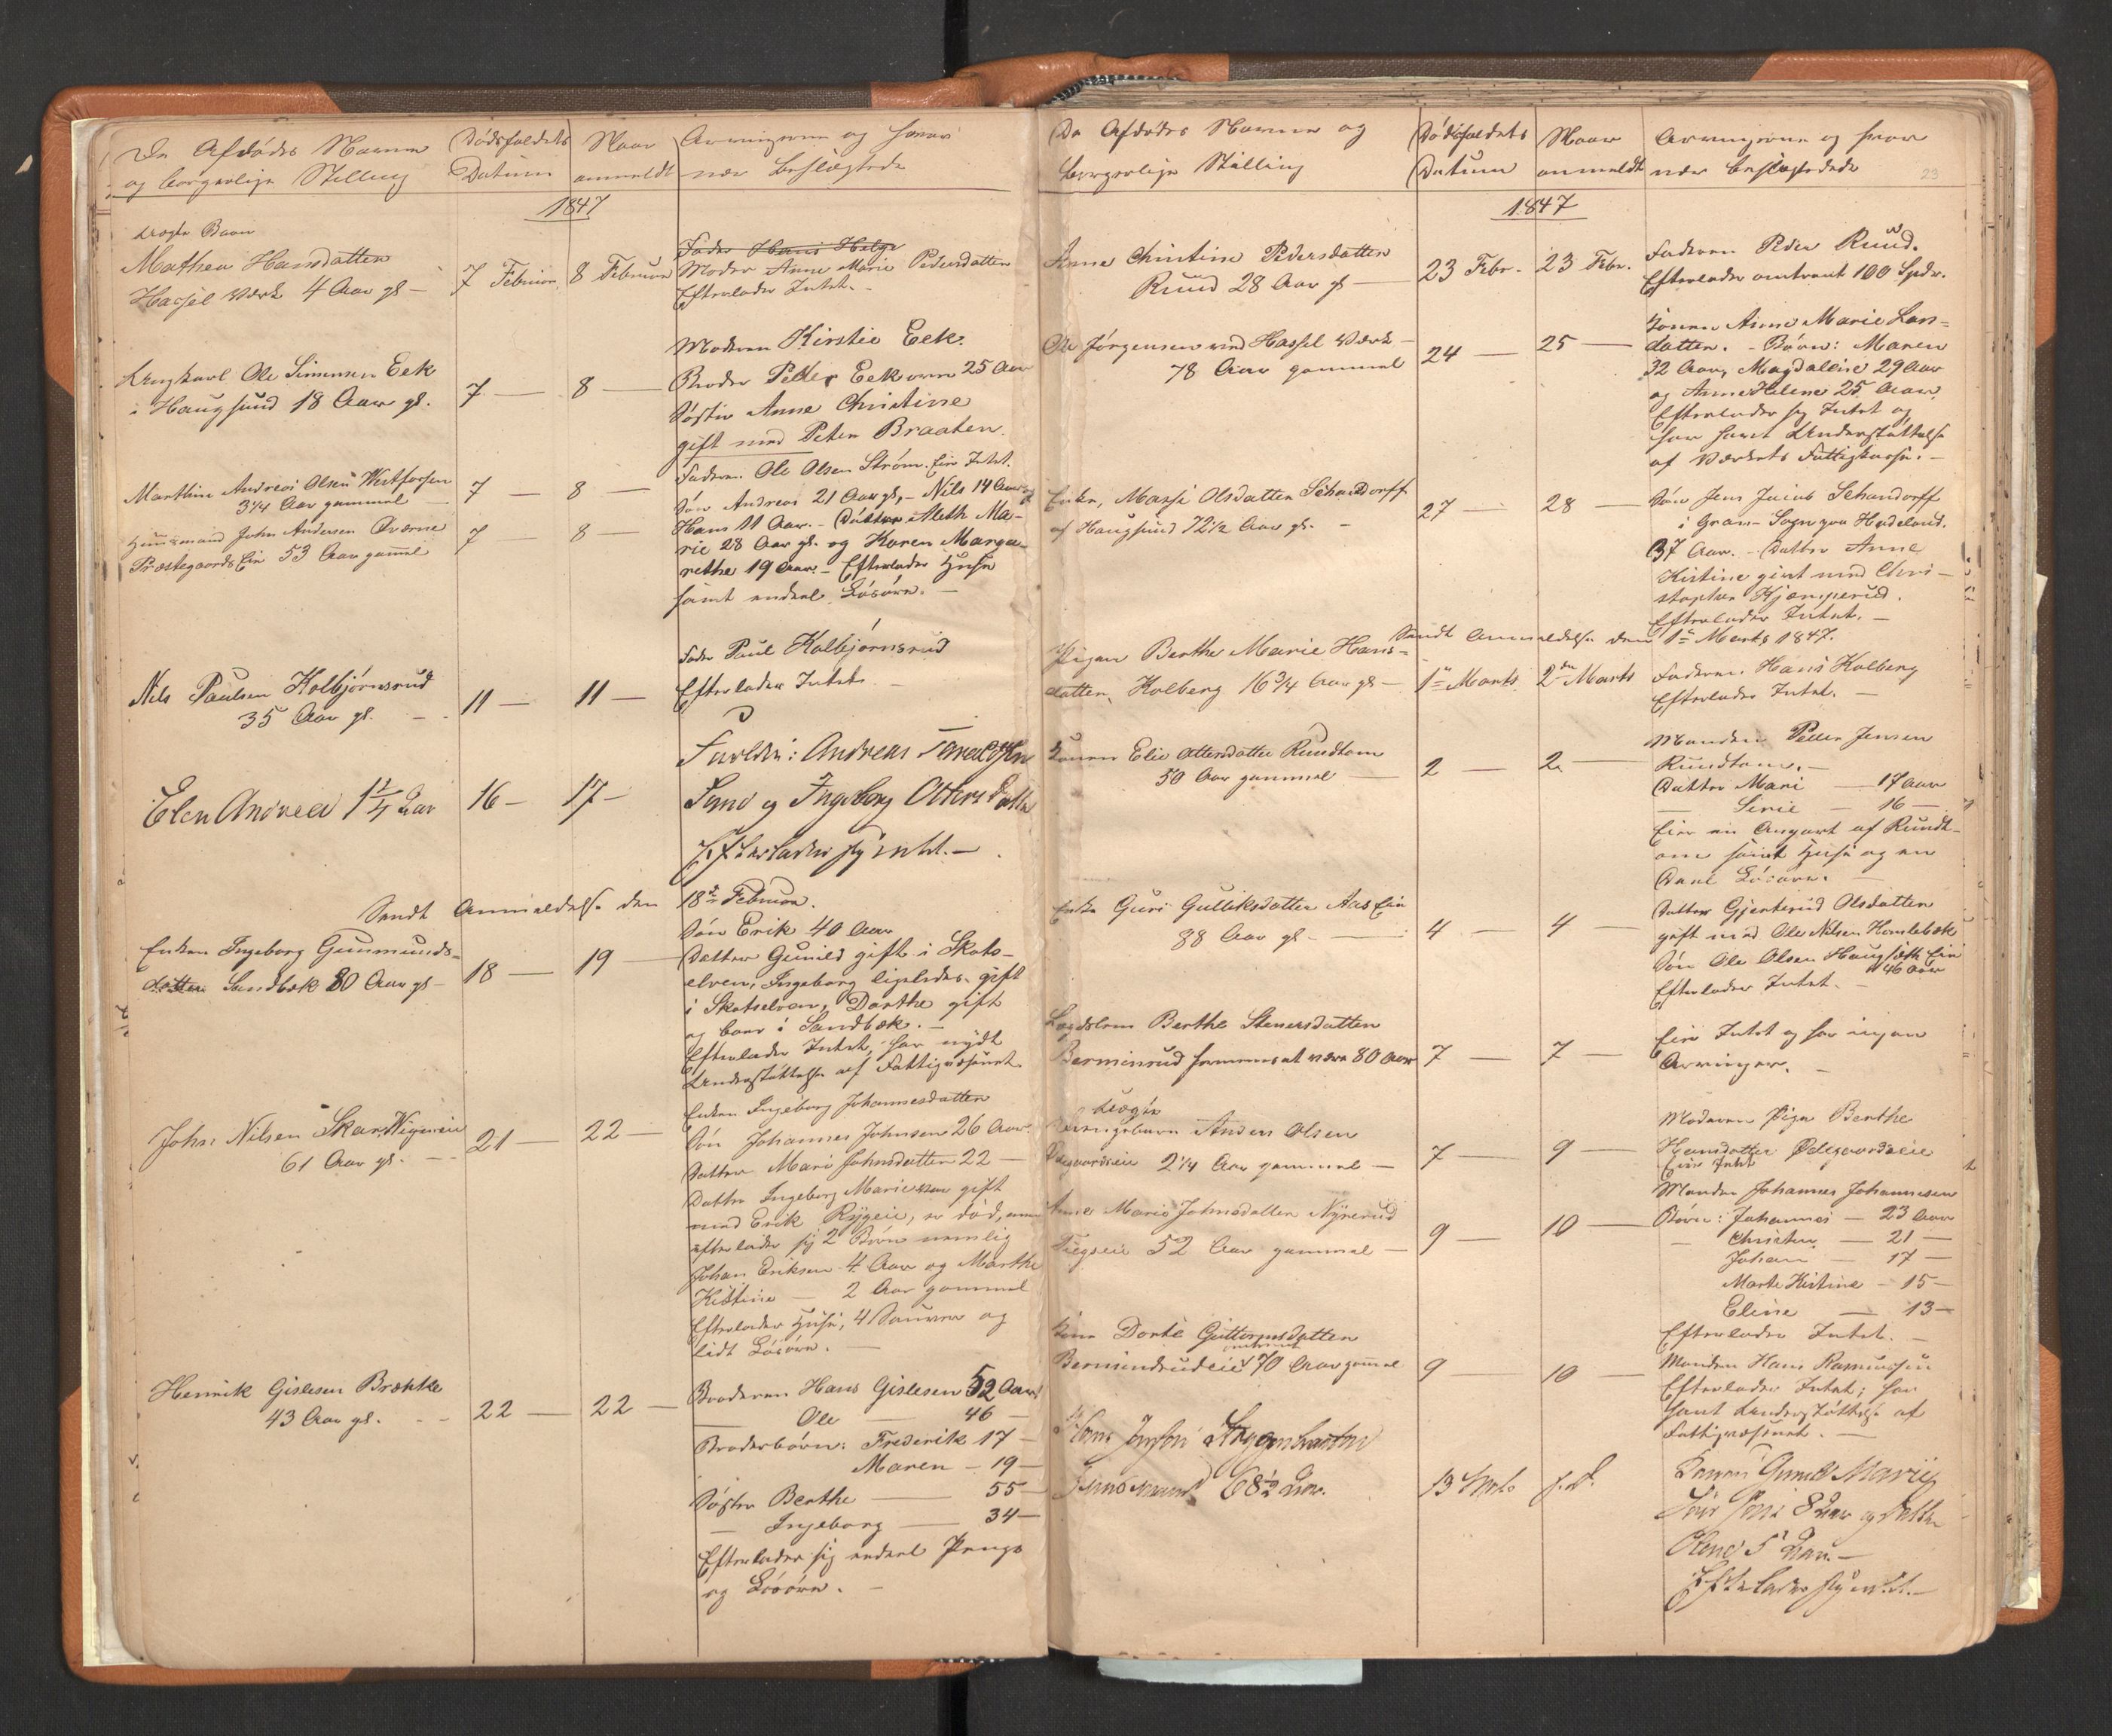 De Afdødes Navne
og borgerlige Stilling
Dødsfaldets
Datum
Naar
anmeldt
Arvingerne og hvem
nær beslægtede
1847
uægte Barn
Mathea Hansdatter
Hassel Værk 4 Aar gl
7 Februar
8 Februar
Fader Hans Helge
Moder Anne Marie Pedersdatter
Efterlader Intet. -
Ungkarl Ole Simensen Eek
i Haugsund 18 Aar gl.
7 —
8 —
Moderen Kirstie Eek.
Broder Peder Eek 25 Aar
Søster Anne Christine
gift med Peter Braaten.
Marthin Andreas Olsen Westfossen
3 1/4 Aar gammel
7 —
8 —
Faderen Ole Olsen Strøm. Eier Intet.
Huusmand John Andersen Qværne
Præstegaards Eie 53 Aar gammel
7
8 —
Søn Andreas 21 Aar gl, - Nils 14 Aar
Hans 11 Aar. - Datter Aleth Ma-
rie 28 Aar gl. og Karen Marga-
rethe 19 Aar. - Efterlader Huse
samt endeel Løsøre. -
Nils Paulsen Kolbjørnsrud
35 Aar gl.
11 —
11 —
Fader Paul Kolbjørnsrud
Efterlader Intet. -
Elen Andrea 1 1/4 Aar
16 —
17 —
Forældre: Andreas
og Ingeborg Ottersdatter
Efterlader sig intet. -
Sendt Anmeldelse den 18de Februar.
Enken Ingeborg Gunmunds-
datter Sandbæk 80 Aar gl -
18 —
19 —
Søn Erik 40 Aar
Datter Gunild gift i Skots-
elven, Ingeborg ligeledes gift
i Skotselven, Dorthe gift
og boer i Sandbæk. -
Efterlader Intet, har nydt
Understøttelse af Fattigvæsenet
John Nilsen Skar
61 Aar gl.
21 —
22 —
Enken Ingeborg Johannesdatter
Søn Johannes Johnsen 26 Aar.
Datter Mari Johnsdatter 22 —
Datter Ingeborg Marie gift
med Erik Rygeie, er død, men
efterlader sig 2 Børn nemlig
Johan Eriksen 4 Aar og Marthe
Kistine — 2 Aar gammel
Efterlader Huse, 4 Sauer og
lidt Løsøre. —
Henrik Gislesen Brække
43 Aar gl.
22 —
22 —
Broderen Hans Gislesen 52 Aar
— Ole — 46 —
Broderbørn: Frederik 17 —
Maren — 19 —
Søster Berthe — 55 —
— Ingeborg — 34 —
Efterlader sig endeel Penge
og Løsøre. —
De Afdødes Navne og
borgerlige Stilling
Dødsfaldets
Datum
Naar
anmeldt
Arvingerne og hvem
nær beslægtede
23
1847
Anne Christine Pedersdatter
Ruud 28 Aar gl —
23 Febr.
23 Febr.
Faderen Peder Ruud.
Efterlader omtrent 100 Spdr.
Ole Jørgensen ved Hassel Værk -
78 Aar gammel
24 —
25 —
Konen Anne Marie Lars-
datter. - Børn: Maren
32 Aar, Magdalene 29 Aar
og Anne Helene 25 Aar.
Efterlader sig Intet og
har havt Understøttelse
af Værkets Fattigkasse. -
Enken, Massi Olsdatter Schandorff
af Haugsund 72 1/2 Aar gl. -
27 —
28 —
Søn Jens Jacob Schandorff
i Gran Sogn paa Hadeland.
37 Aar. - Datter Anne
Kistine givt med Chri-
stopher Kjemperud.
Efterlader Intet. -
Sendt Anmeldelse den 1ste Marts 1847.
Pigen Berthe Marie Hans-
datter, Kolberg 16 3/4 Aar gl -
1ste Marts
2den Marts
Faderen Hans Kolberg
Efterlader Intet. —
Konen Elie Ottersdatter Rundtom
50 Aar gammel —
2 —
2 —
Manden Peder Jensen
Rundtom. -
Datter Mari — 17 Aar
— Sirie — 16 —
Eier en Anpart af Rundt-
om samt Huse og en
Deel Løsøre. -
Enke Guri Gulliksdatter Aas Eie
88 Aar gl. —
4 —
4 —
Datter Gjertrud Olsdatter
gift med Ole Nilsen Homlebæk
Søn Ole Olsen Eie
46 Aar
Efterlader Intet. -
Lægdslem Berthe Stenersdatter
Berminrud at være 80 Aar
7 —
7 —
Eier Intet og har ingen
Arvinger. -
uægte
Drengebarn Anders Olsen
2 1/4 Aar gammel —
7 —
9 —
Moderen Pige Berthe
Hansdatter Ødegaardseie
Eier Intet
Anne Marie Johnsdatter Nyrerud
52 Aar gammel —
9 —
10 —
Manden Johannes Johannesen
Børn: Johannes — 23 Aar
— Christen — 21 —
Johan — 17 —
Marte Kistine — 15 —
Eline — 13 —
Efterlader Intet. -
Kone Dorte Guttormsdatter
omtrent
Bermindrudeie 70 Aar gammel
9 —
10 —
Manden Hans Rasmussen
Efterlader Intet; har
havt Understøttelse af
Fattigvæsenet. -
Huusmand 68 1/2 Aar.
13 Marts
s. D.
Konen Gunild Marie
8 Aar og Datter
5 Aar. —
Efterlader sig intet. —